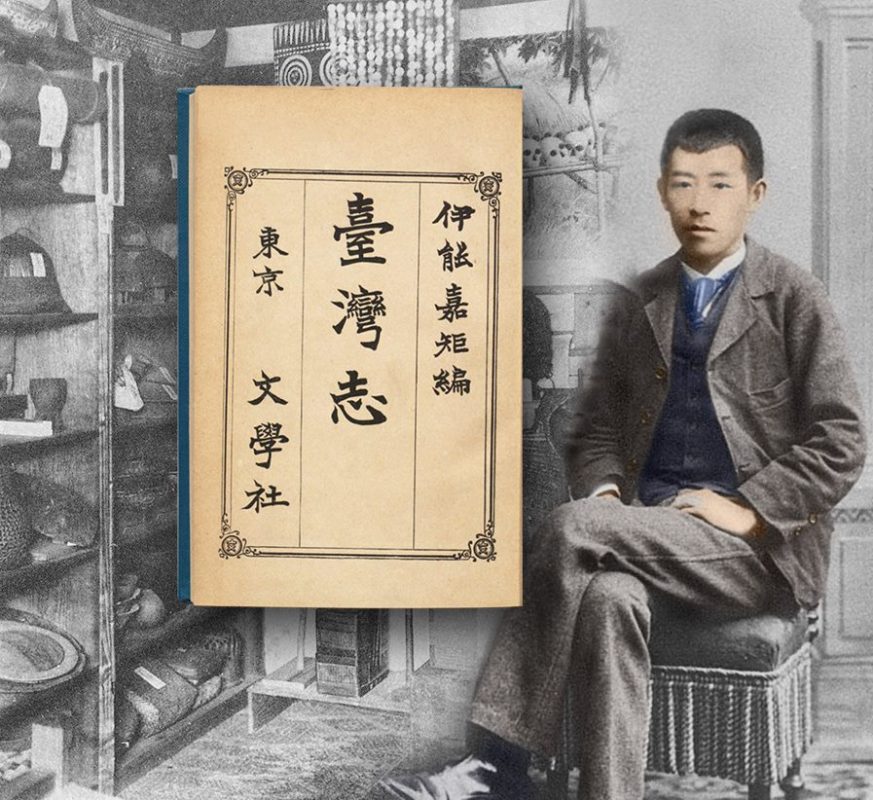 伊能嘉矩編
臺灣志
東京 文學社